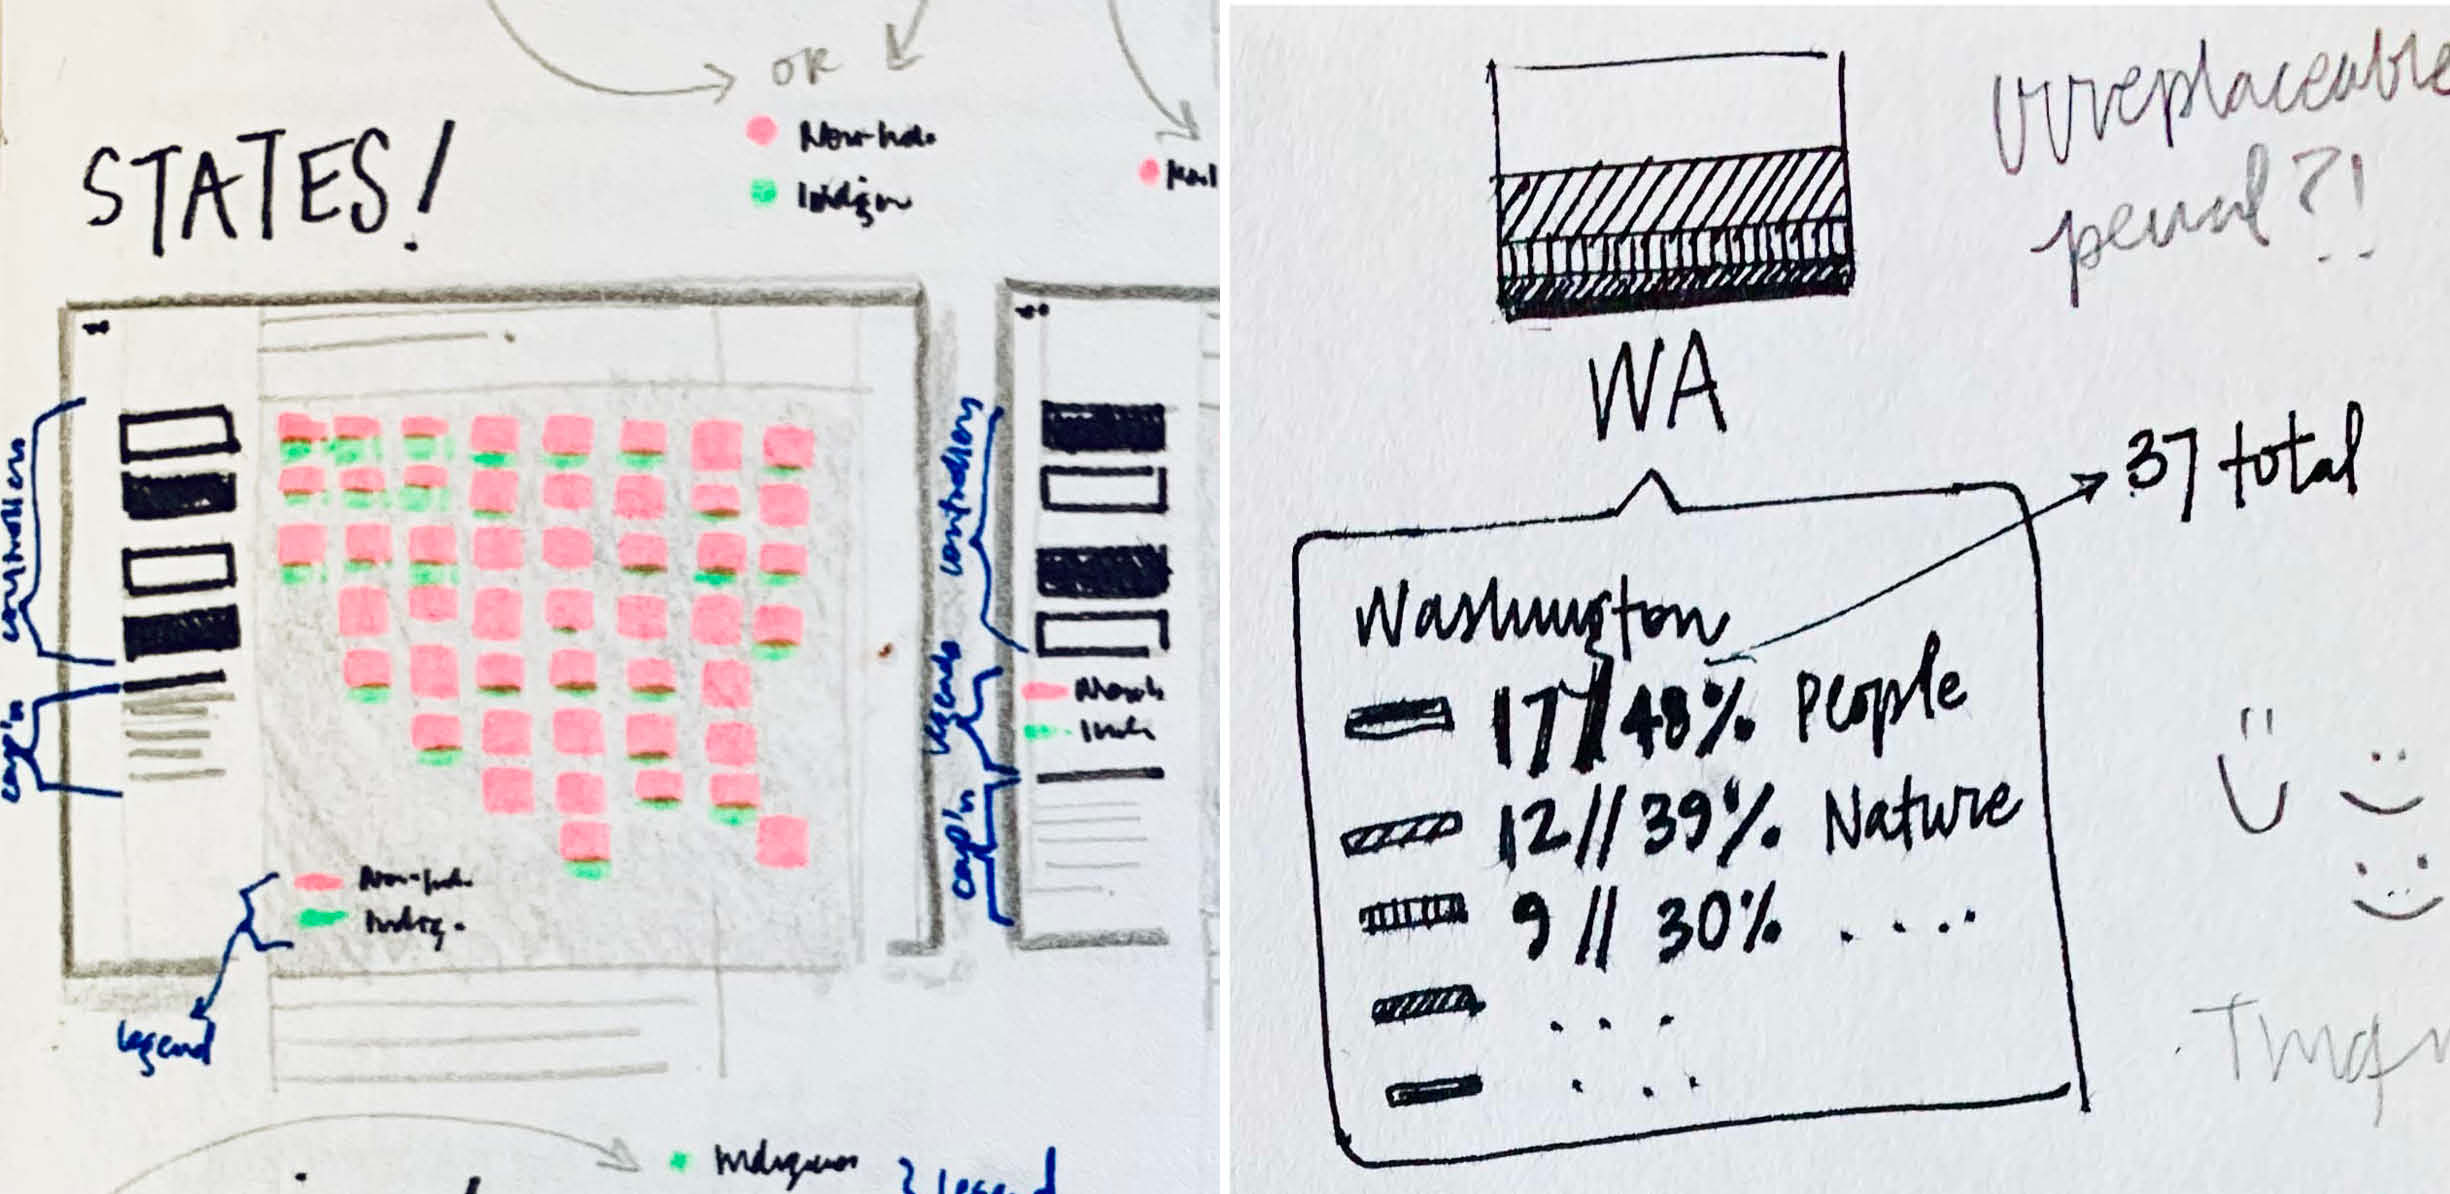 OR
Non-Indi.
Indigen
STATES!
controllers
cap'n
Non-Indi.
Indig.
legend
controllers
legends
cap'n
Indigenous
legend
Irreplaceable
pencil?!
WA
37 total
Washington
17//48% People
12//39% Nature
9//30% ....
...
...